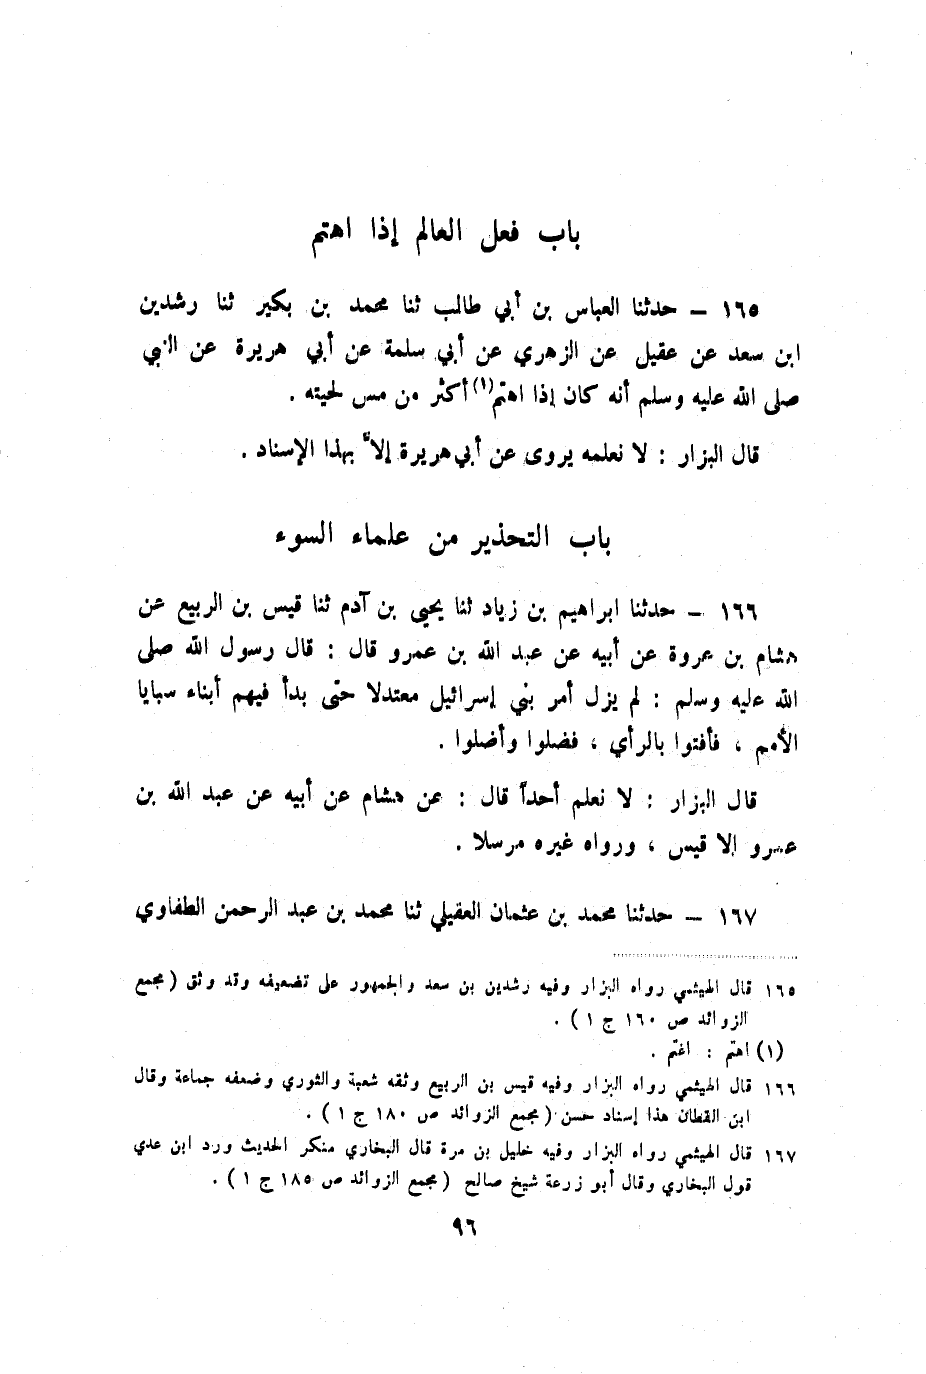 باب فعل العالم إذا اهتم
١٦٥ – حدثنا العباس بن أبي طالب ثنا محمد بن بكير ثنا رشدين
ابن سعد عن عقيل عن الزهري عن أبي سلمة عن أبي هريرة عن النبي
صلى الله عليه وسلم أنه كان إذا اهتم(١) أكثر من مس لحيته .
قال البزار : لا نعلمه يروى عن أبي هريرة إلاّ بهذا الإسناد .
باب التحذير من علماء السوء
١٦٦ – حدثنا ابراهيم بن زياد ثنا يحيى بن آدم ثنا قيس بن الربيع عن
هشام بن عروة عن أبيه عن عبد الله بن عمرو قال : قال رسول الله صلى
الله عليه وسلم : لم يزل أمر بني إسرائيل معتدلا حتى بدأ فيهم أبناء سبايا
الأمم ، فأفتوا بالرأي ، فضلوا وأضلوا .
قال البزار : لا نعلم أحداً قال : عن هشام عن أبيه عن عبد الله بن
عمرو إلا قيس ، ورواه غيره مرسلا .
١٦٧ – حدثنا محمد بن عثمان العقيلي ثنا محمد بن عبد الرحمن الطفاوي
١٦٥ قال الهيثمي رواه البزار وفيه رشدين بن سعد والجمهور على تضعيفه وقد وثق ( مجمع
الزوائد ص ١٦٠ ج ١ ) .
(١) اهتم : اغتم .
١٦٦ قال الهيثمي رواه البزار وفيه قيس بن الربيع وثقه شعبة والثوري وضعفه جماعة وقال
ابن القطان هذا إسناد حسن ( مجمع الزوائد ص ١٨٠ ج ١ ) .
١٦٧ قال الهيثمي رواه البزار وفيه خليل بن مرة قال البخاري منكر الحديث ورد ابن عدي
قول البخاري وقال أبو زرعة شيخ صالح ( مجمع الزوائد ص ١٨٥ ج ١ ) .
٩٦